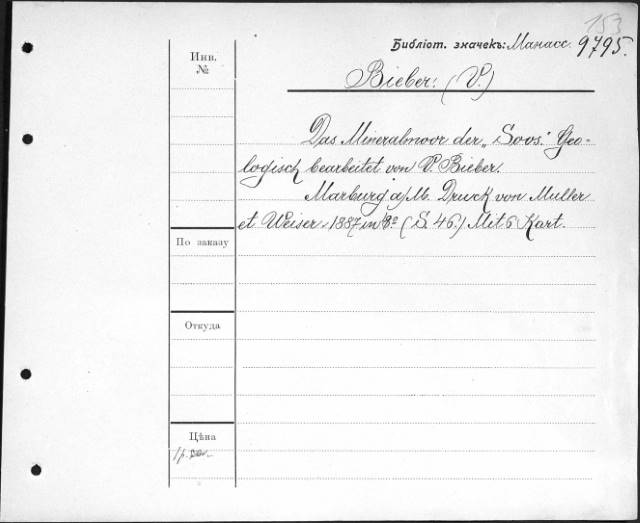 153
Библіот. значекъ: Манасс. 9795.
Инв.
№
Bieber: (V.)
Das Mineralmoor der „Soos.“ Geo-
logisch bearbeitet von V. Bieber.
Marburg a/M. Druck von Muller
et Weiser. 1887 in 8º (S. 46.) Mit 6 Kart.
По заказу
Откуда
Цѣна
1 р.